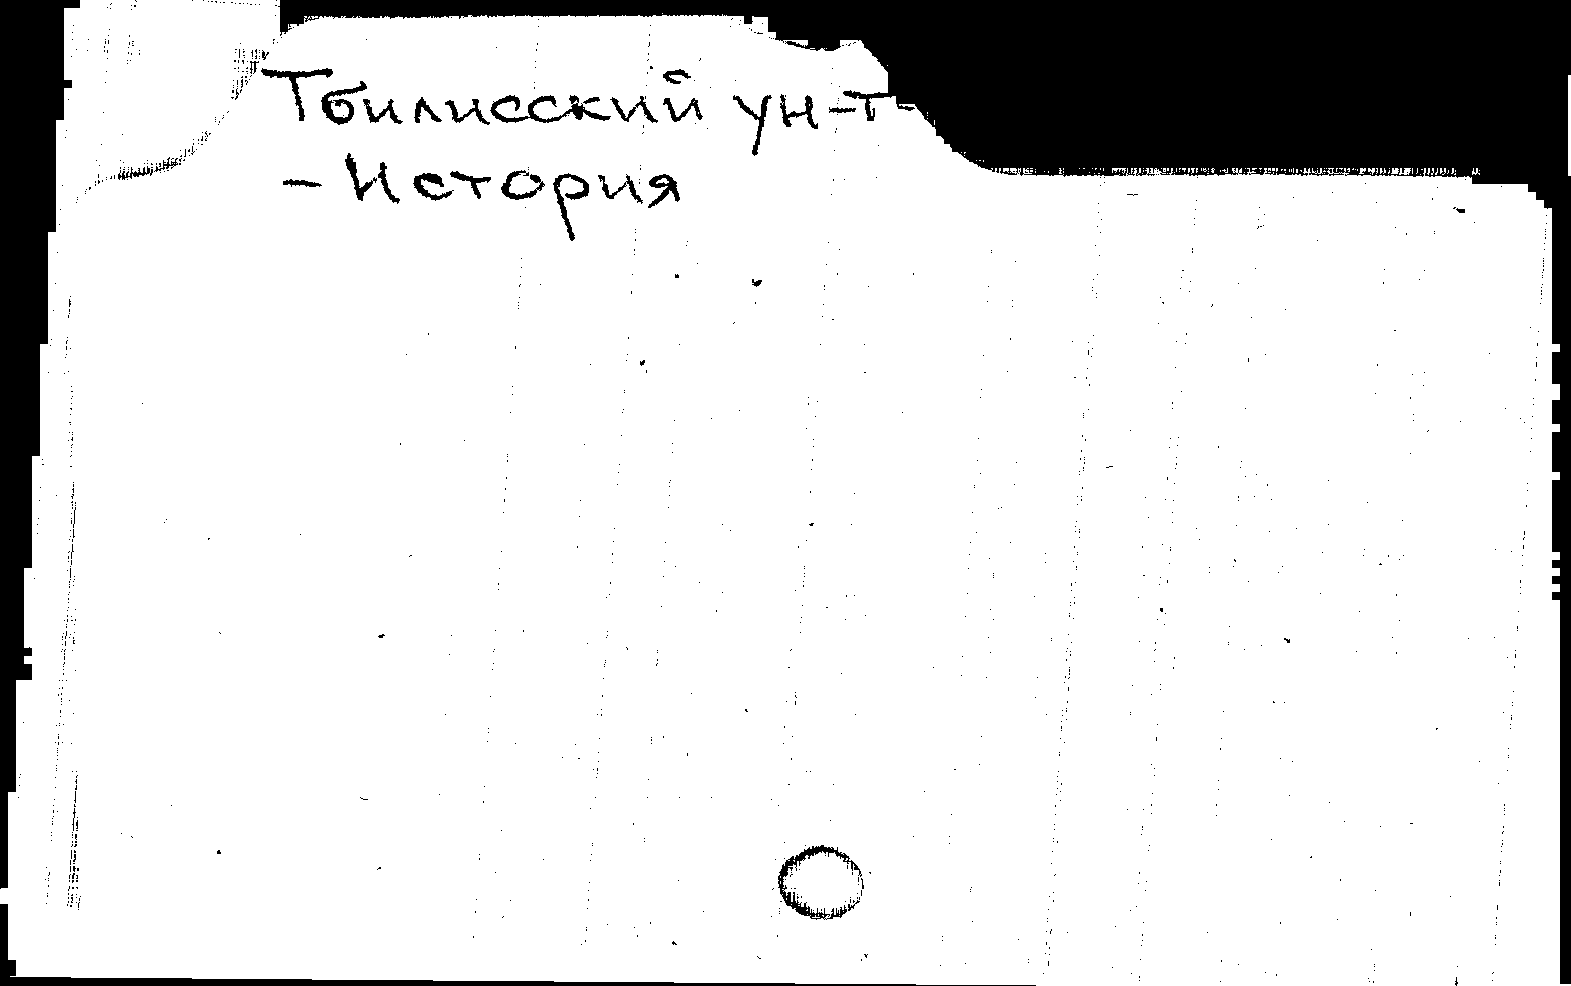 Тбилисский ун-т-
- История